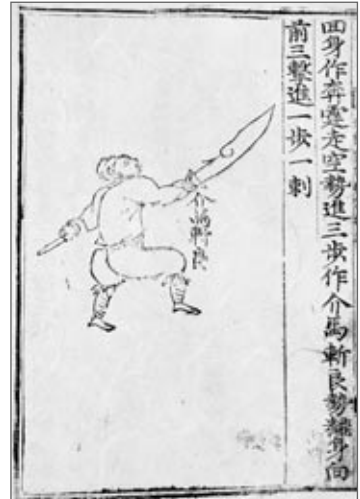 囬身作奔霆走空勢進三步作介馬斬良勢飜身向
前三擊進一步一刺
介馬斬良